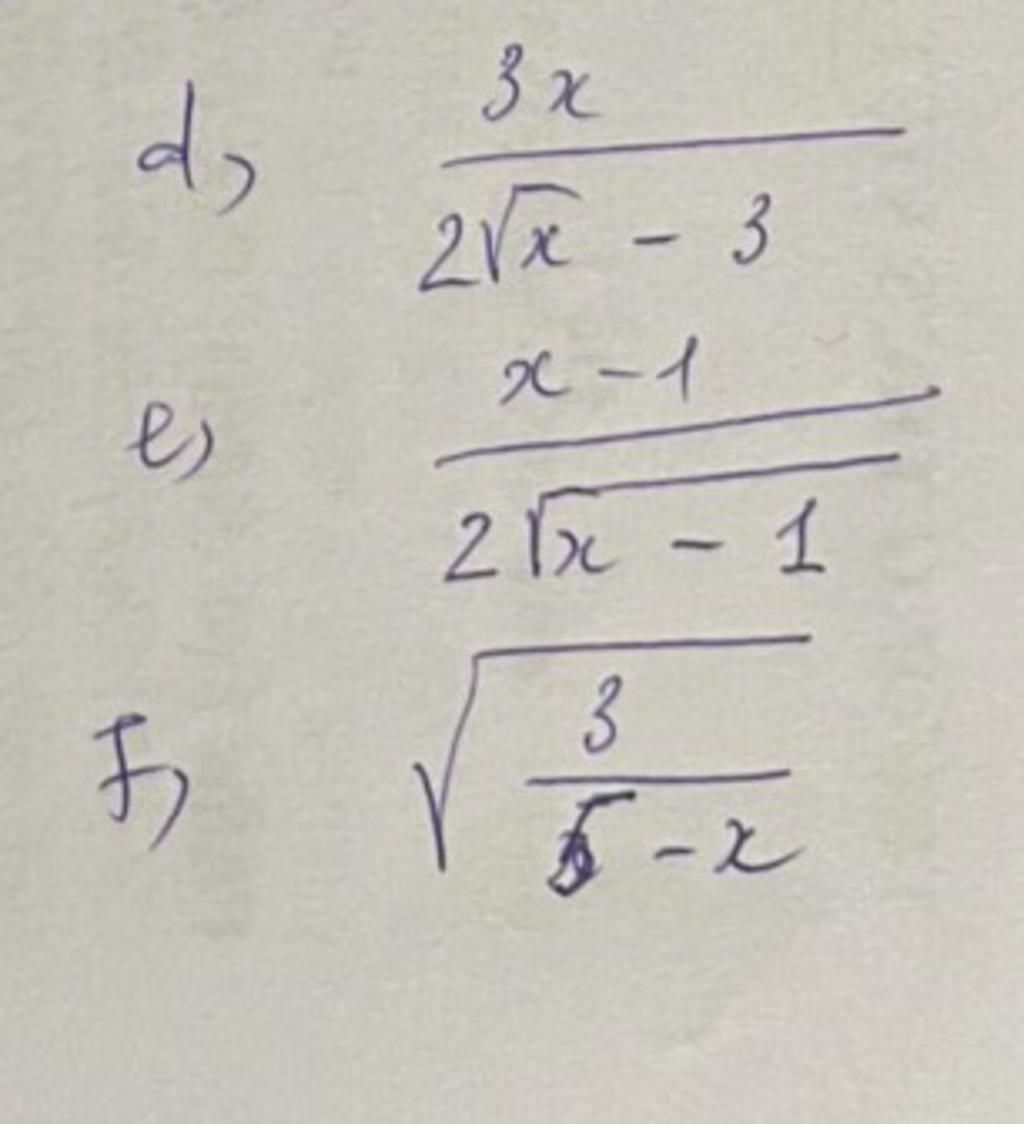 d, \frac{3x}{2\sqrt{x} - 3}
e, \frac{x-1}{2\sqrt{x-1}}
f, \sqrt{\frac{3}{5-x}}